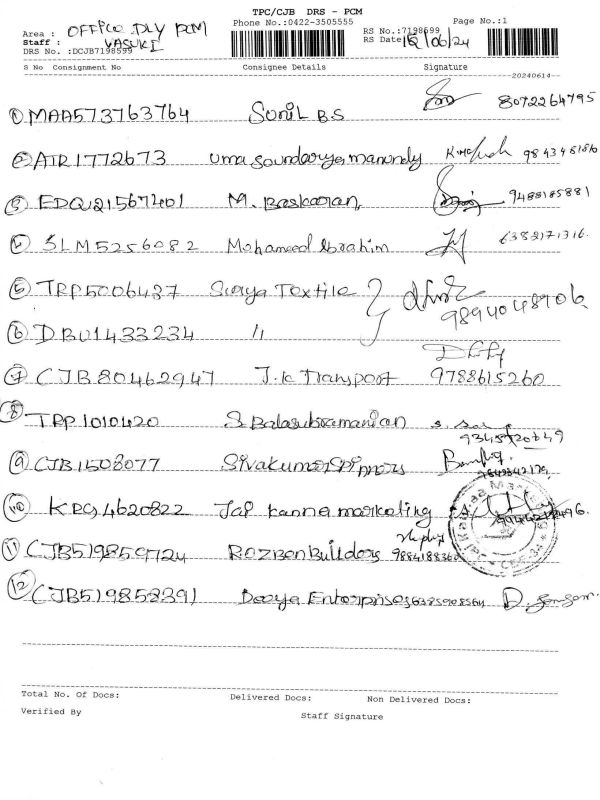 TPC/CJB DRS - PCM
Phone No.:0422-3505555 Page No.:1
Area : OFFICE DLY PCM
Staff : VASUKI
DRS No. :DCJB7198599
RS No.:7198599
RS Date /06/24
S No Consignment No Consignee Details Signature
20240614
① MAA573763764 Sunil B.S 8072264795
② AIR1772673 Uma Soundarya
③ EDQU21567401 M. Baskaran 9488185881
④ SLM5256082 Mohameed Ibrahim 6382171316
⑤ TRP5006437 Surya Textile 9894048906
⑥ DBU1433234 "
⑦ CJB80462947 J.K Transport 9788615260
⑧ TRP1010420 S Balasubramanian
⑨ CJB1508077 Sivakumar Spinners
⑩ KRG4620822 Jai Kanna marketing
⑪ CJB519859724 RozBen Builders
⑫ CJB519858391 Deeya Enterprises
Total No. Of Docs: Delivered Docs: Non Delivered Docs:
Verified By Staff Signature